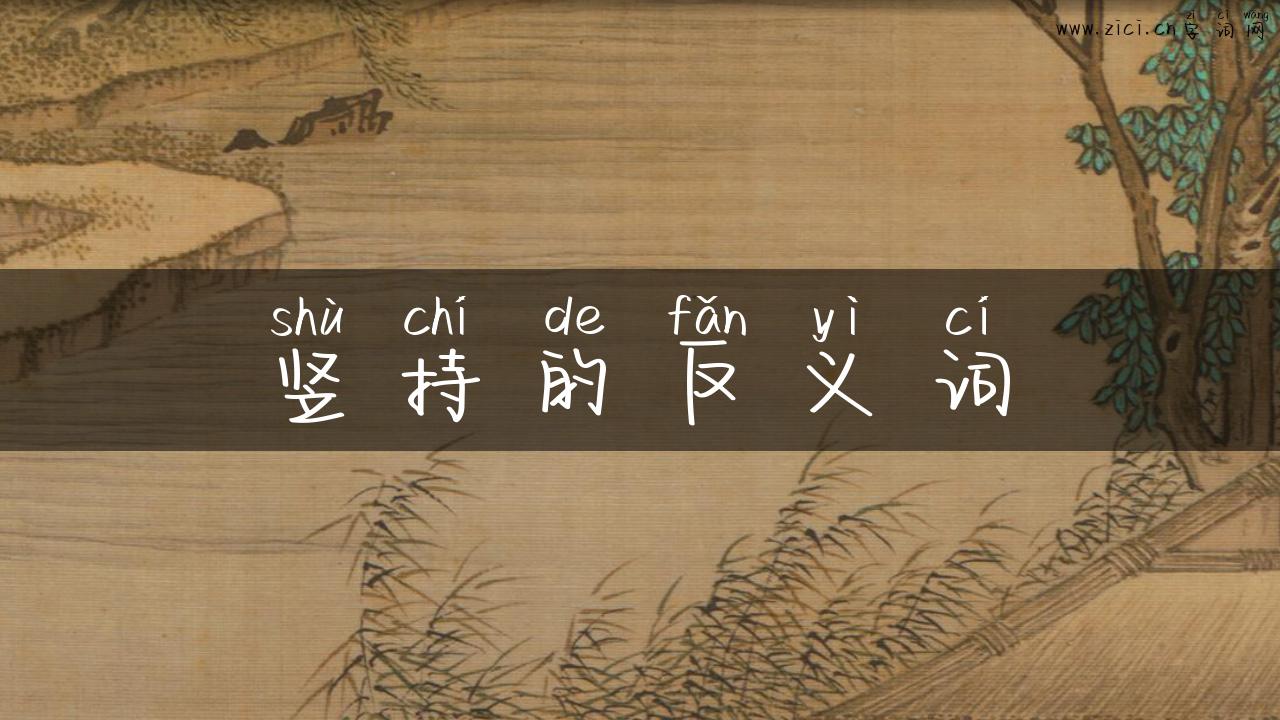 zì cí wǎng
www.zici.cn字词网
shù chí de fǎn yì cí
竖持的反义词